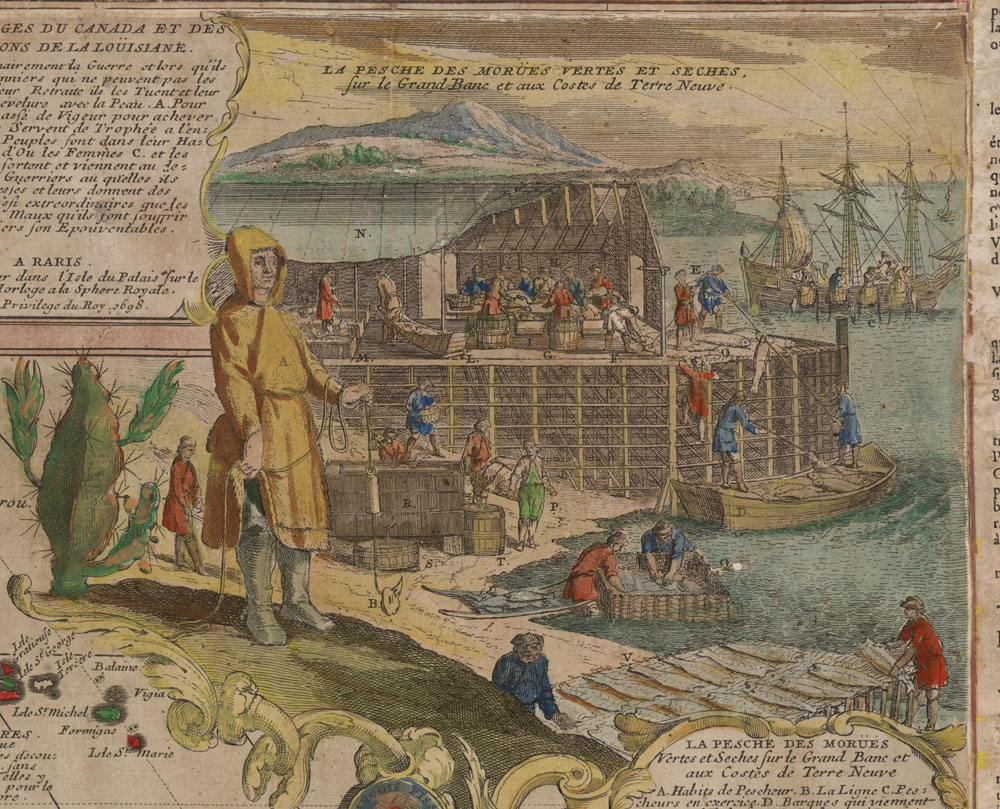 GES DU CANADA ET DES
ONS DE LA LOÜISIANE.
nairement la Guerre et lors qu'ils
nniers qui ne peuvent pas les
eur Retraite ils les Tuent et leur
evelure avec la Peau. A. Pour
assé de Vigeur pour achever
Servent de Trophée a l'en-
Peuples font dans leur Ha-
d'Ou les Femmes C. et les
sortent et viennent au de-
Guerriers au qu'elles ils
et leurs donnent des
si extreordinaires que les
Maux qu'ils font souffrir
ers son Epouventables.
A RARIS.
er dans l'Isle du Palais sur le
Horloge a la Sphere Royale.
Privilege du Roy. 1698
LA PESCHE DES MORÜES VERTES ET SECHES,
sur le Grand Banc et aux Costes de Terre Neuve.
N.
H
P E
C
I
M
L
G
F
O
A
R
D
P.
S
T
Q
B
V
rou.
Isle
Isle St. George
Isle
Balaine
Vigia
Isle St. Michel
Formigas
Isle Ste. Marie
RES.
ue
es decou-
sans
elles y
pour le
ore.
LA PESCHE DES MORÜES
Vertes et Seches sur le Grand Banc et
aux Costes de Terre Neuve
A. Habits de Pescheur. B. La Ligne C. Pes-
cheurs en exercice. D. Barques qui viennent